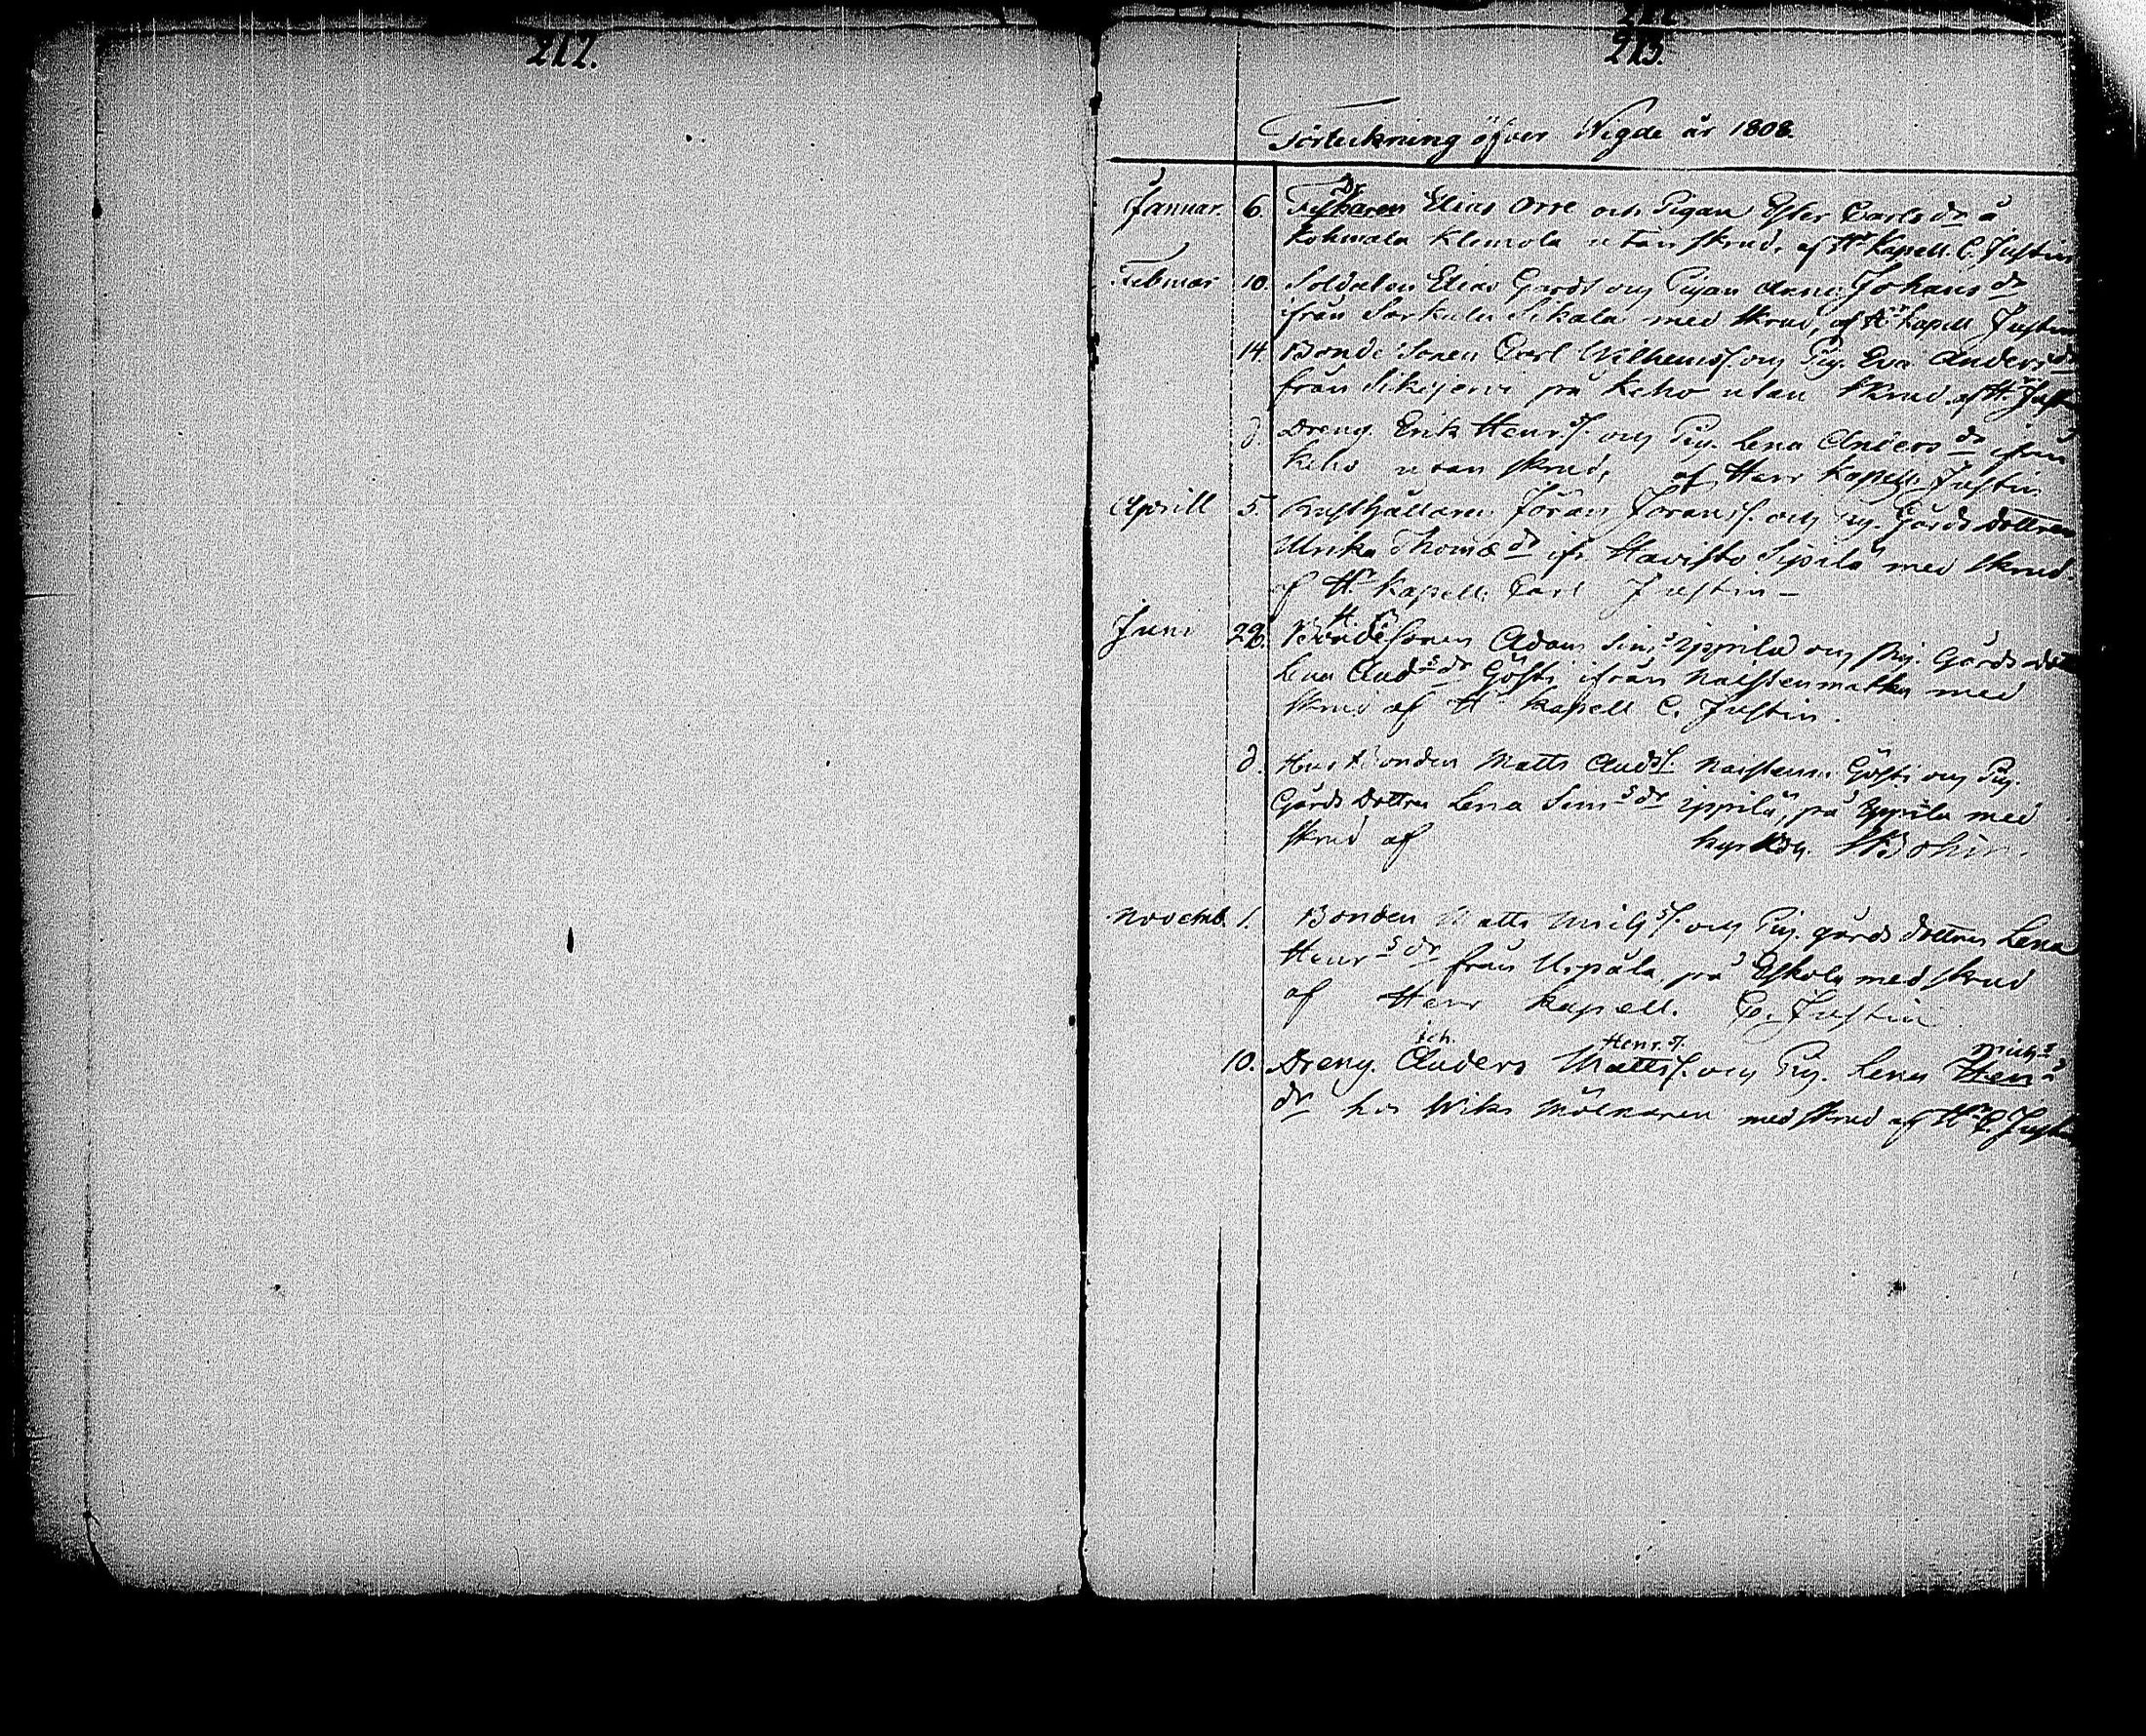 212.
213.
Förteckning öfver Wigde år 1808.
Januar. 6. Dr. Elias Orre och Pigan Ester Carls dr å
Kohmala Klemola utan skrud, af Hr Kapell. C. Justin
Februar 10. Soldaten Elias Gardt och Pigan Anna Johans dr
ifrån Sarkula Sikala med skrud, af Hr Kapell Justin
14. Bonde Sonen Carl Wilhems s. och Pig. Eva Anders dr
från Sikejerwi på Keho utan skrud af Hr Just
d. Dreng. Erik Henr. s. och Pig. Lena Anders dr ifrån
Keho utan skrud, af Herr Kapell. Justin
Aprill 5. Rusthållaren Jöran Jorans s. och Pig. Gårds dottren
Ulrika Thomæ dr ifr. Havisto Sipilä med skrud
af Hr Kapell. Carl Justin –
Juni 28. H. B.
Bondesonen Adam Sim. s Yppilä och Pig. Gårds dot
Lena And s dr Gösti ifrån Naistenmatka med
skrud af Hr Kapell C. Justin.
d. Husbonden Matts And s. Naistenm. Gösti och Pig.
Gårds Dottren Lena Sim s dr Yppilä, på Yppilä med
skrud af
Novemb. 1. Bonden Matts Mich s. och Pig. gårds dottren Lena
Henr s dr från Urpala, på Eskola med skrud
af Herr Kapell. C. Justin
ich. Henr. s. Mich s
10. Dreng. Anders Matts s. och Pig. Lena Hen s
dr hos Wiks Mölnaren med skrud af Hr C. Justi